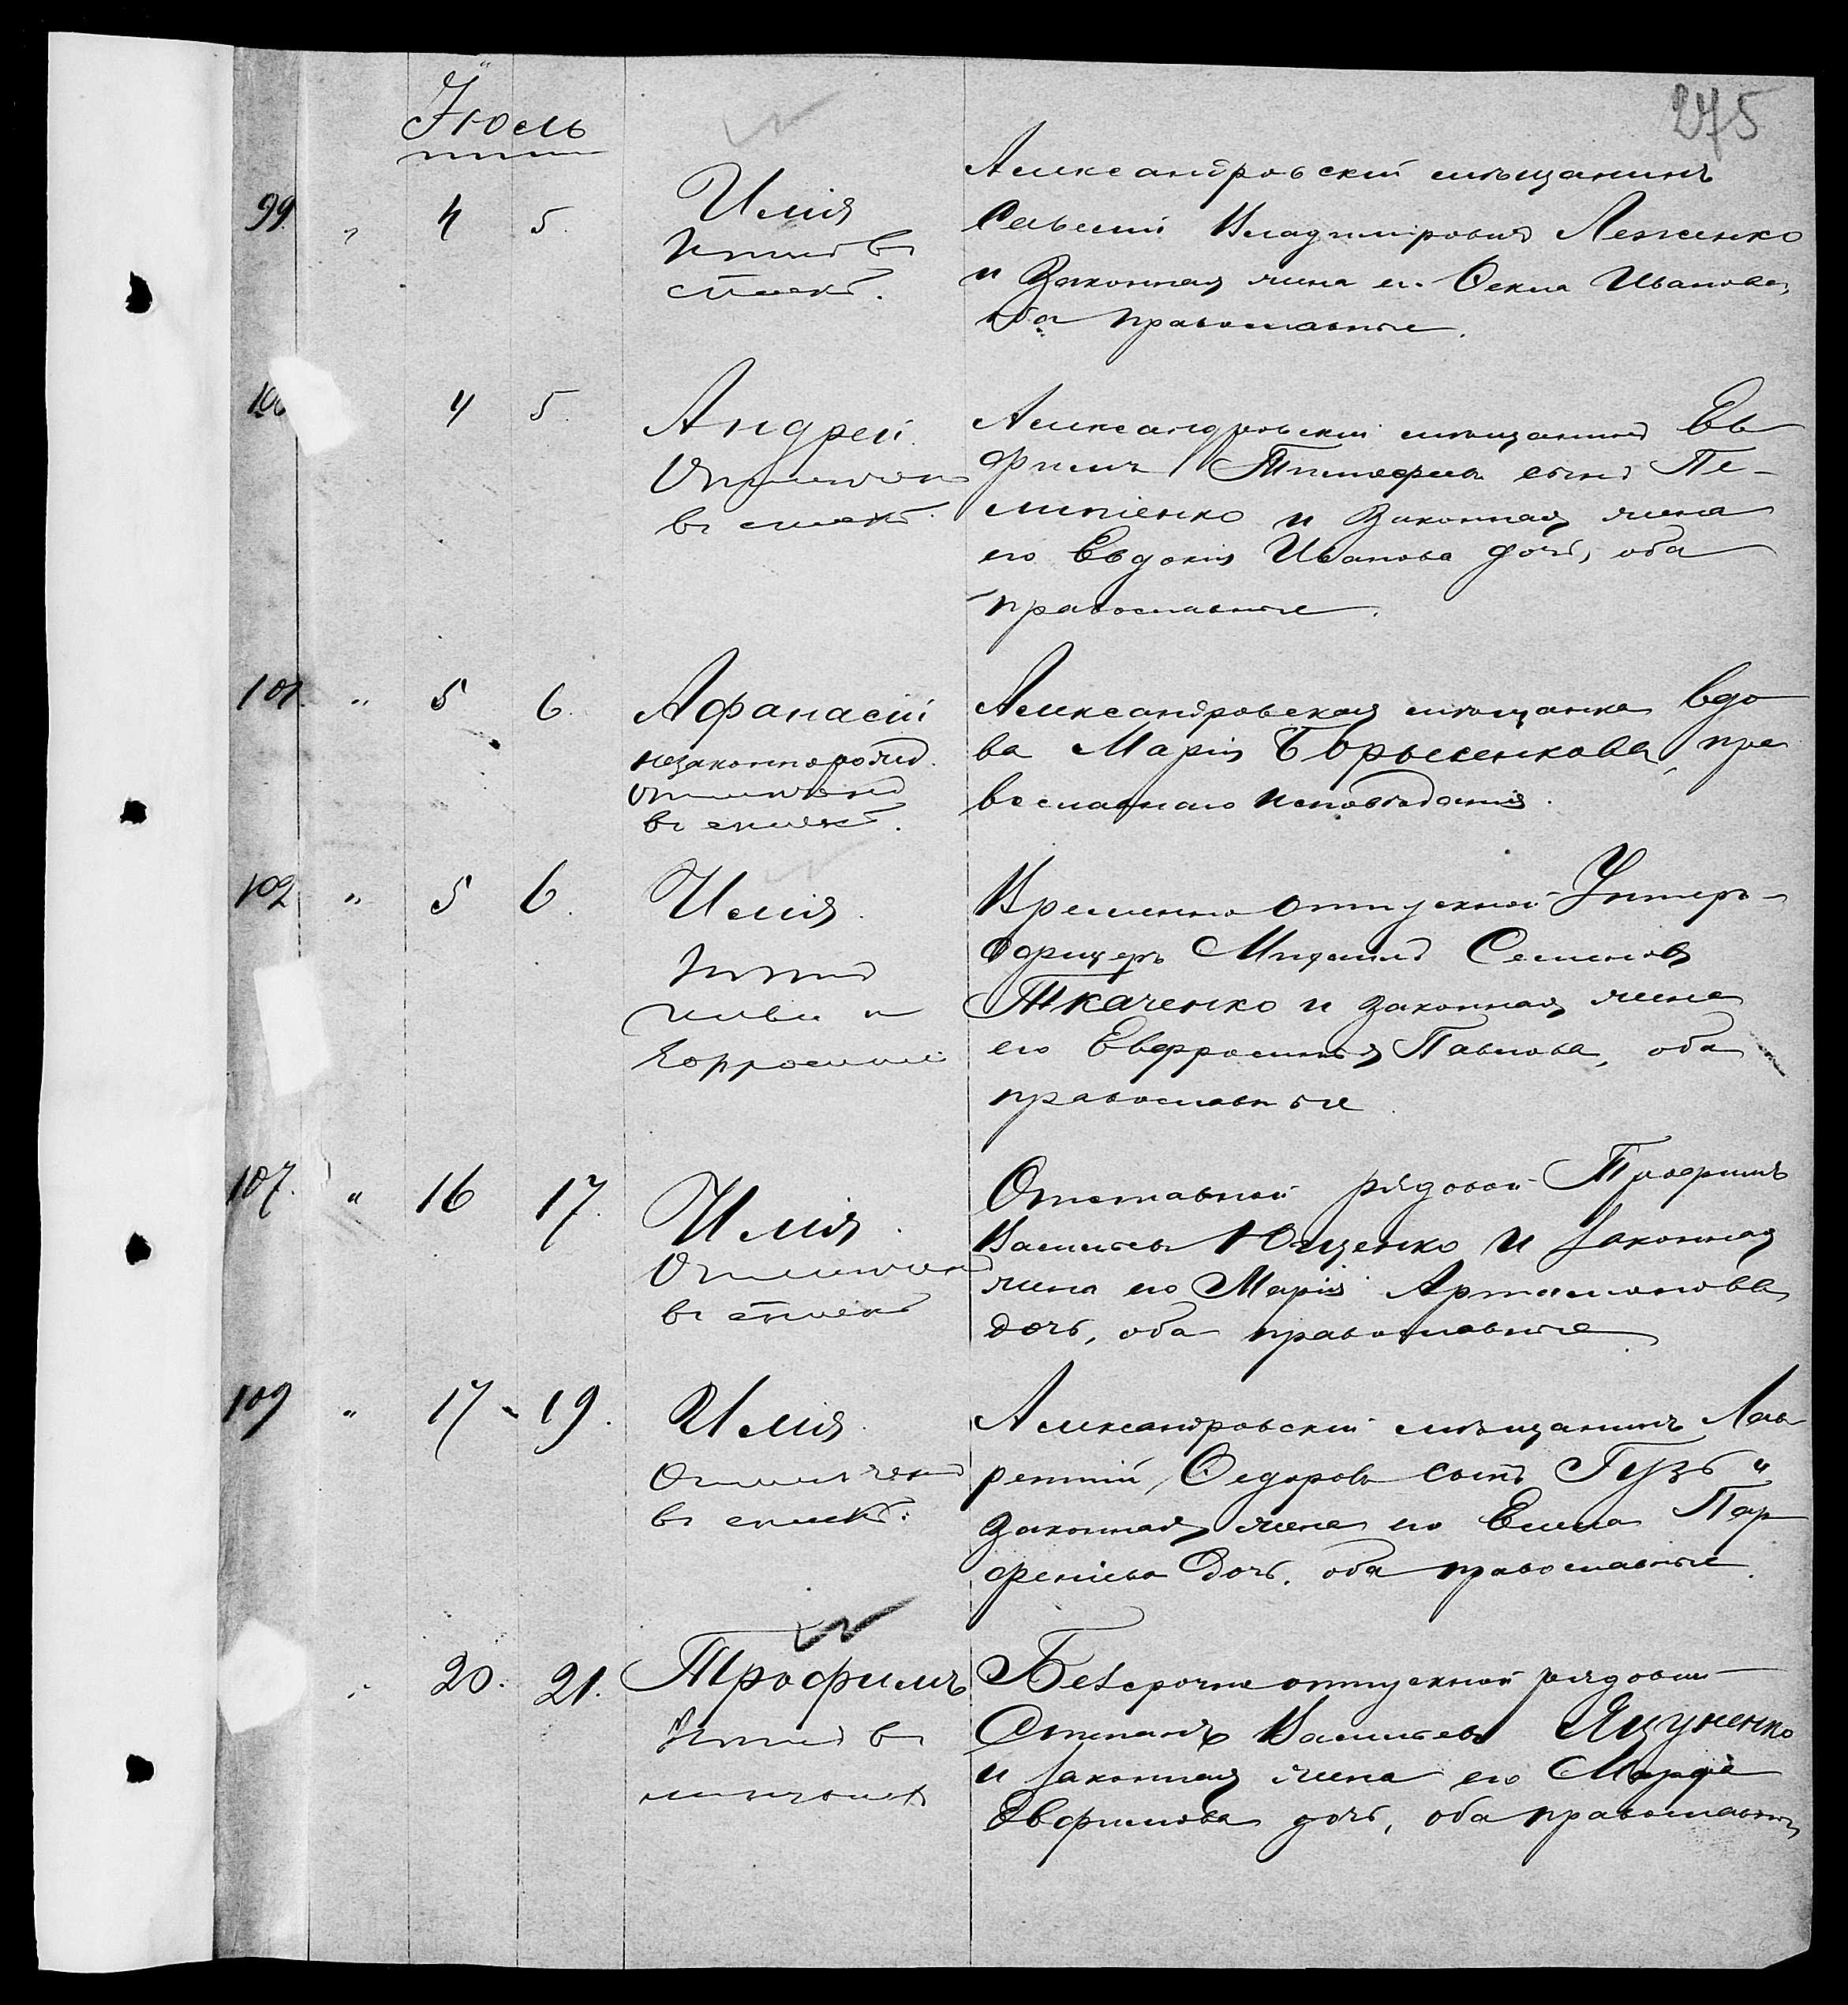 275
Іюль
99. " 4 5. Илія
Александровскій мѣщанинъ
Савелій Владиміровъ Леженко
и законная жена его Ѳекла Иванова,
оба православные.
100 4 5. Андрей.
Отмѣченъ
въ спискѣ.
Александровскій мѣщанинъ Ев
фимъ Тимофеевъ сынъ Пе-
липенко и законная жена
его Евдокія Иванова дочь, оба
православные.
101. " 5 6. Афанасій
незаконнорожд.
Отмѣченъ
въ спискѣ.
Александровская мѣщанка вдо
ва Марія Борысенкова, пра
вославнаго исповѣданія.
102 " 5 6. Илія.
Временно отпускной Унтеръ-
Офицеръ Михаилъ Семеновъ
Ткаченко и законная жена
его Евфросинія Павлова, оба
православные.
107. " 16 17. Илія.
Отмѣченъ
въ спискѣ
Отставной рядовой Трофимъ
Васильевъ Ющенко и законная
жена его Марія Артамонова
дочь, оба православные
109 " 17 - 19. Илія.
Отмѣченъ
въ спискѣ.
Александровскій мѣщанинъ Лав
рентій Ѳедоровъ сынъ Гузь и
законная жена его Елена Пар
феніева дочь, оба православные.
" 20. 21. Трофимъ
Безсрочно отпускной рядовой
Степанъ Васильевъ Яцуненко
и законная жена его Марфа
Евфимова дочь, оба православны